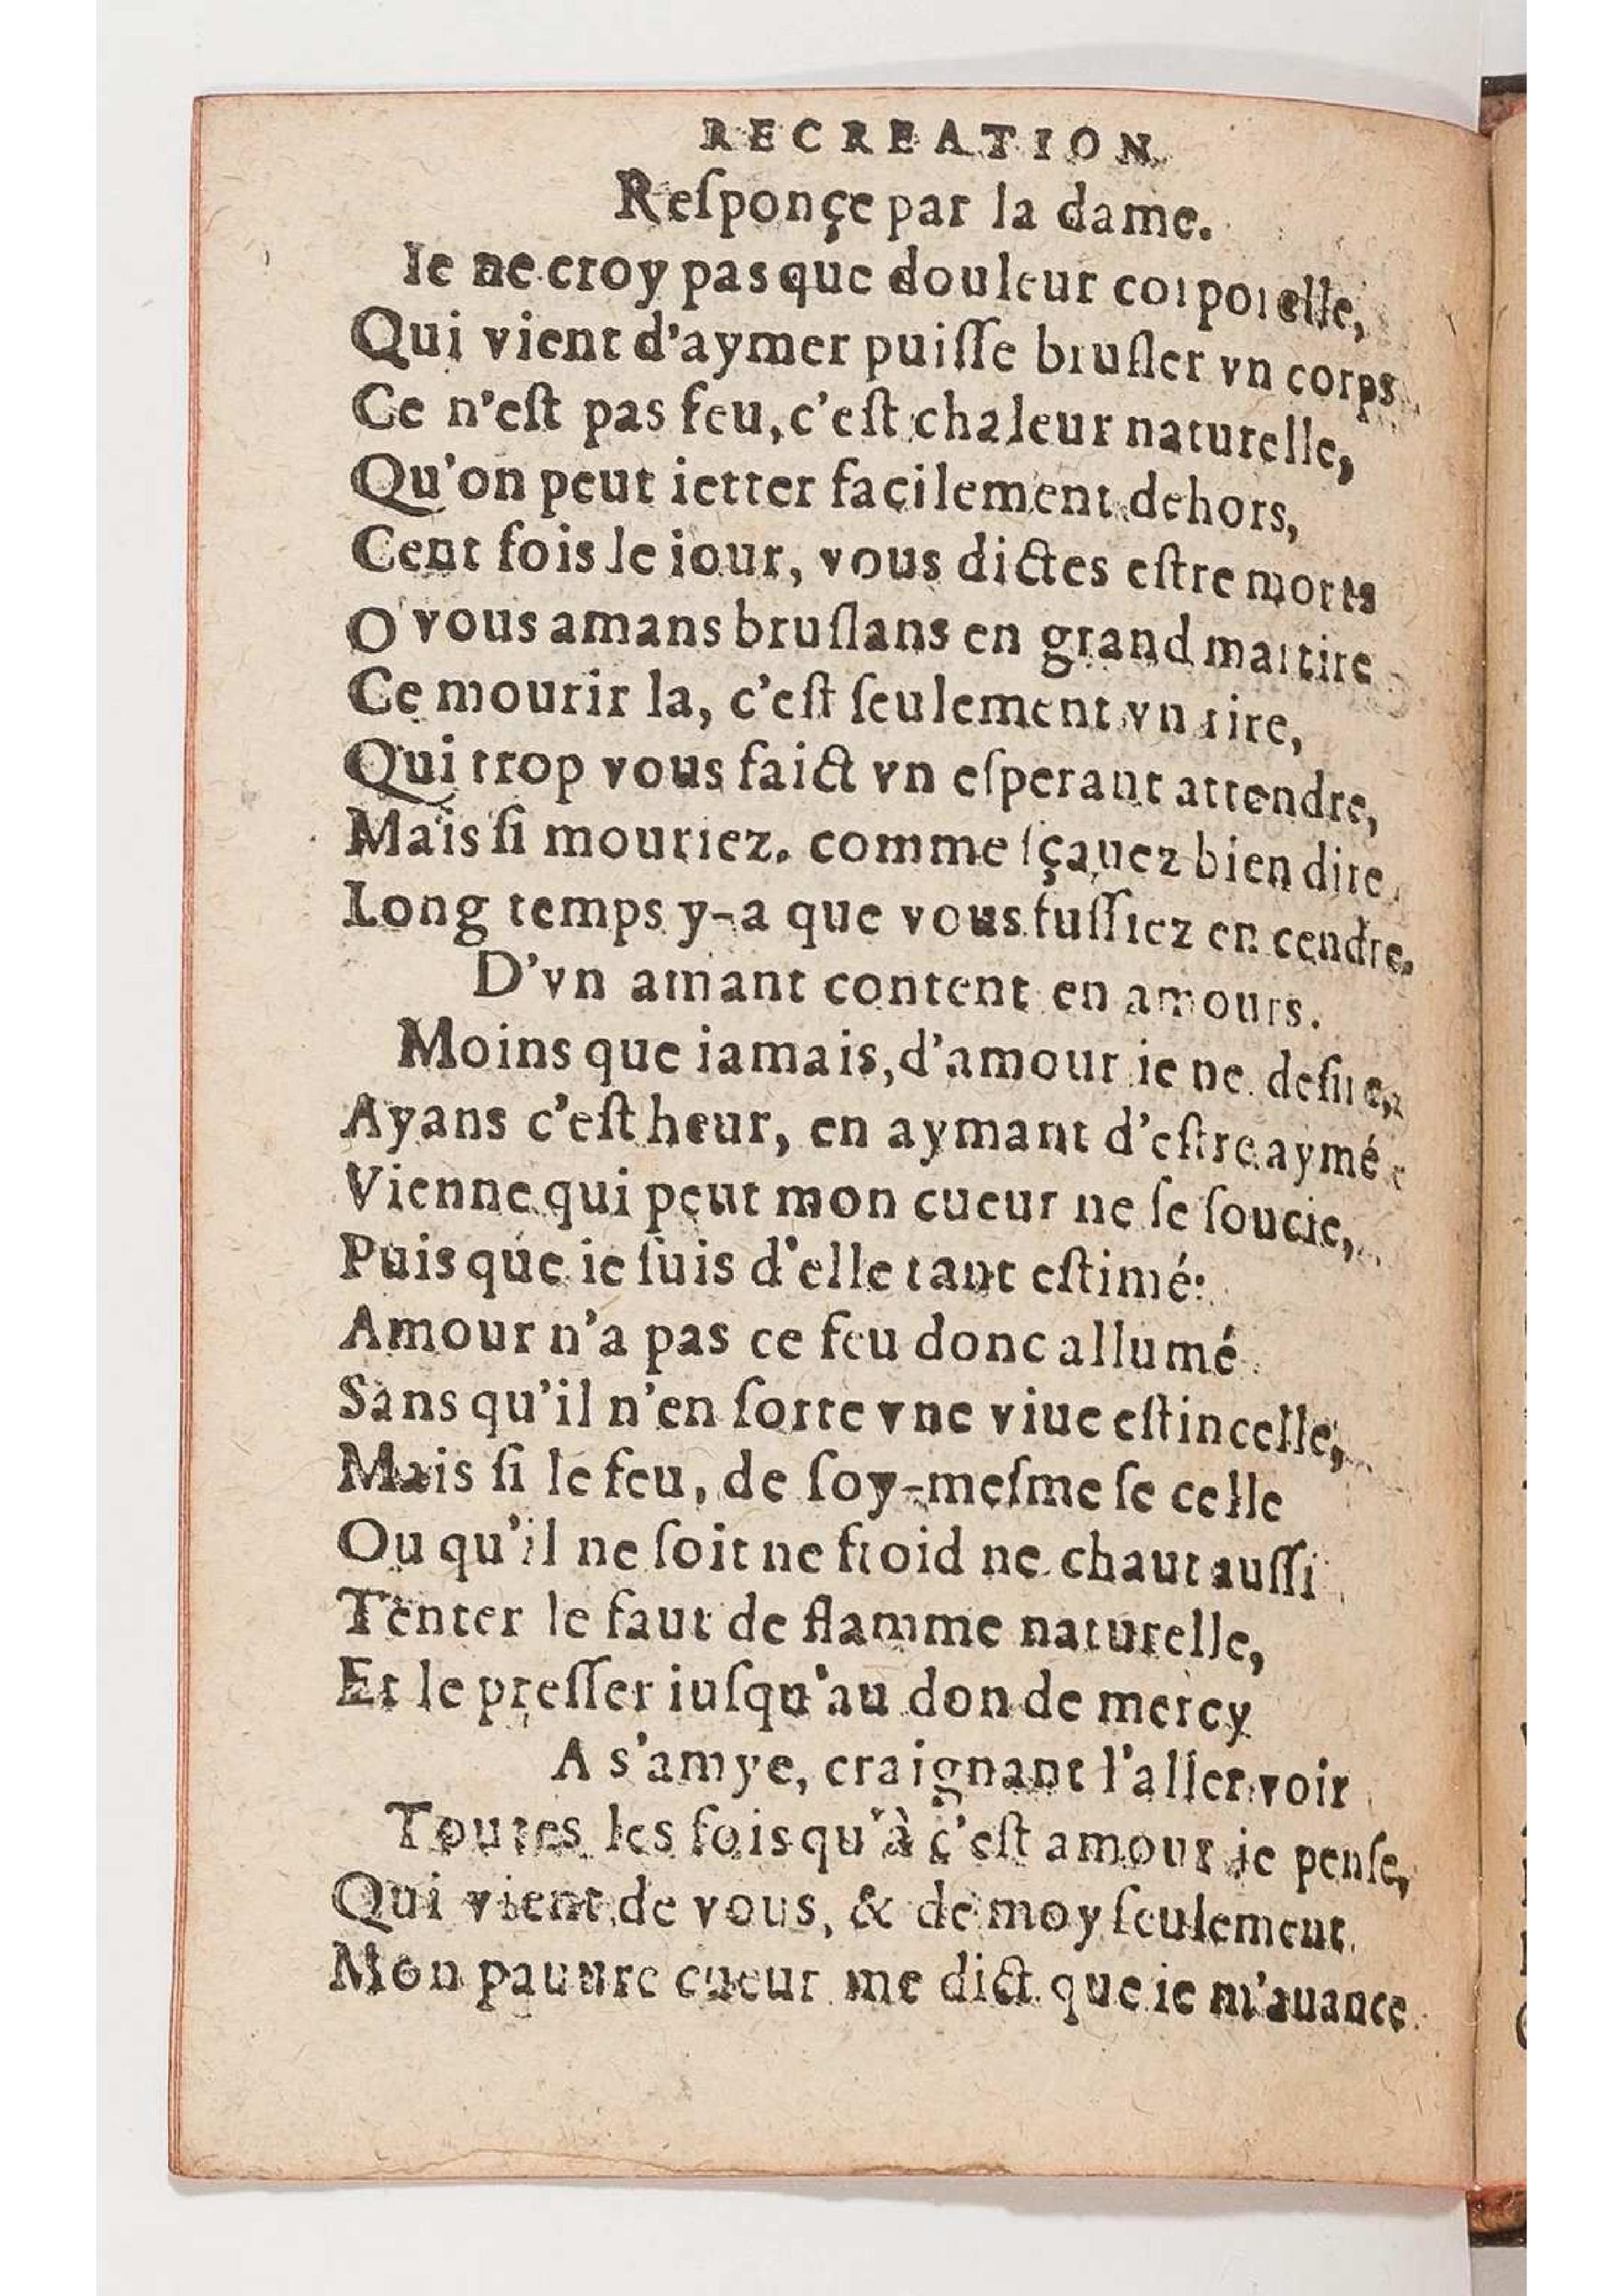 RECREATION
Reſponçe par la dame.
Ie ne croy pas que douleur corporelle,
Qui vient d'aymer puiſſe bruſler vn corps
Ce n'eſt pas feu, c'eſt chaleur naturelle,
Qu'on peut ietter façilement dehors,
Cent fois le iour, vous dictes eſtre morts
O vous amans bruſlans en grand martire
Ce mourir la, c'eſt ſeulement vn rire,
Qui trop vous faict vn eſperant attendre,
Mais ſi mouriez. comme ſçauez bien dire,
Long temps y-a que vous fuſſiez en cendre.
D'vn amant content en amours.
Moins que iamais, d'amour ie ne deſire,
Ayans c'eſt heur, en aymant d'eſtre aymé
Vienne qui peut mon cueur ne ſe ſoucie,
Puis que ie ſuis d'elle tant eſtimé:
Amour n'a pas ce feu donc allumé
Sans qu'il n'en ſorte vne viue eſtincelle,
Mais ſi le feu, de ſoy-meſme ſe celle
Ou qu'il ne ſoit ne froid ne chaut auſſi
Tenter le faut de flamme naturelle,
Et le preſſer iuſqu'au don de mercy
A s'amye, craignant l'aller voir
Toutes les fois qu'à c'eſt amour ie penſe,
Qui vient de vous, & de moy ſeulement.
Mon pauure cueur me dict que ie m'auance